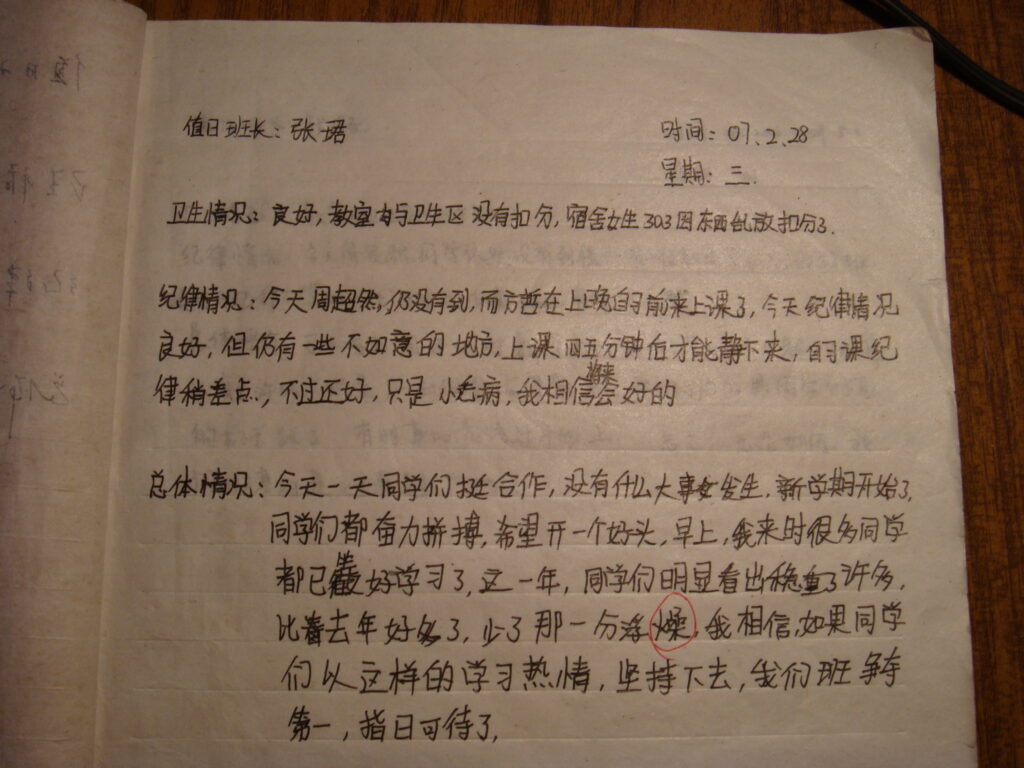 值日班长：张珺
时间：07.2.28
星期：三.
卫生情况：良好，教室内与卫生区没有扣分，宿舍女生303因东西乱放扣分3.
纪律情况：今天周超然，仍没有到，而方哲在上晚自习前来上课了，今天纪律情况
良好，但仍有一些不如意的地方，上课四五分钟后才能静下来，自习课纪
律稍差点，不过还好，只是小毛病，我相信会好的
总体情况：今天一天同学们挺合作，没有什么大事发生，新学期开始了，
同学们都奋力拼搏，希望开一个好头，早上，我来时很多同学
都已 好学习了，这一年，同学们明显看出稳重了许多，
比着去年好多了，少了那一分浮燥，我相信，如果同学
们以这样的学习热情，坚持下去，我们班争夺
第一，指日可待了，